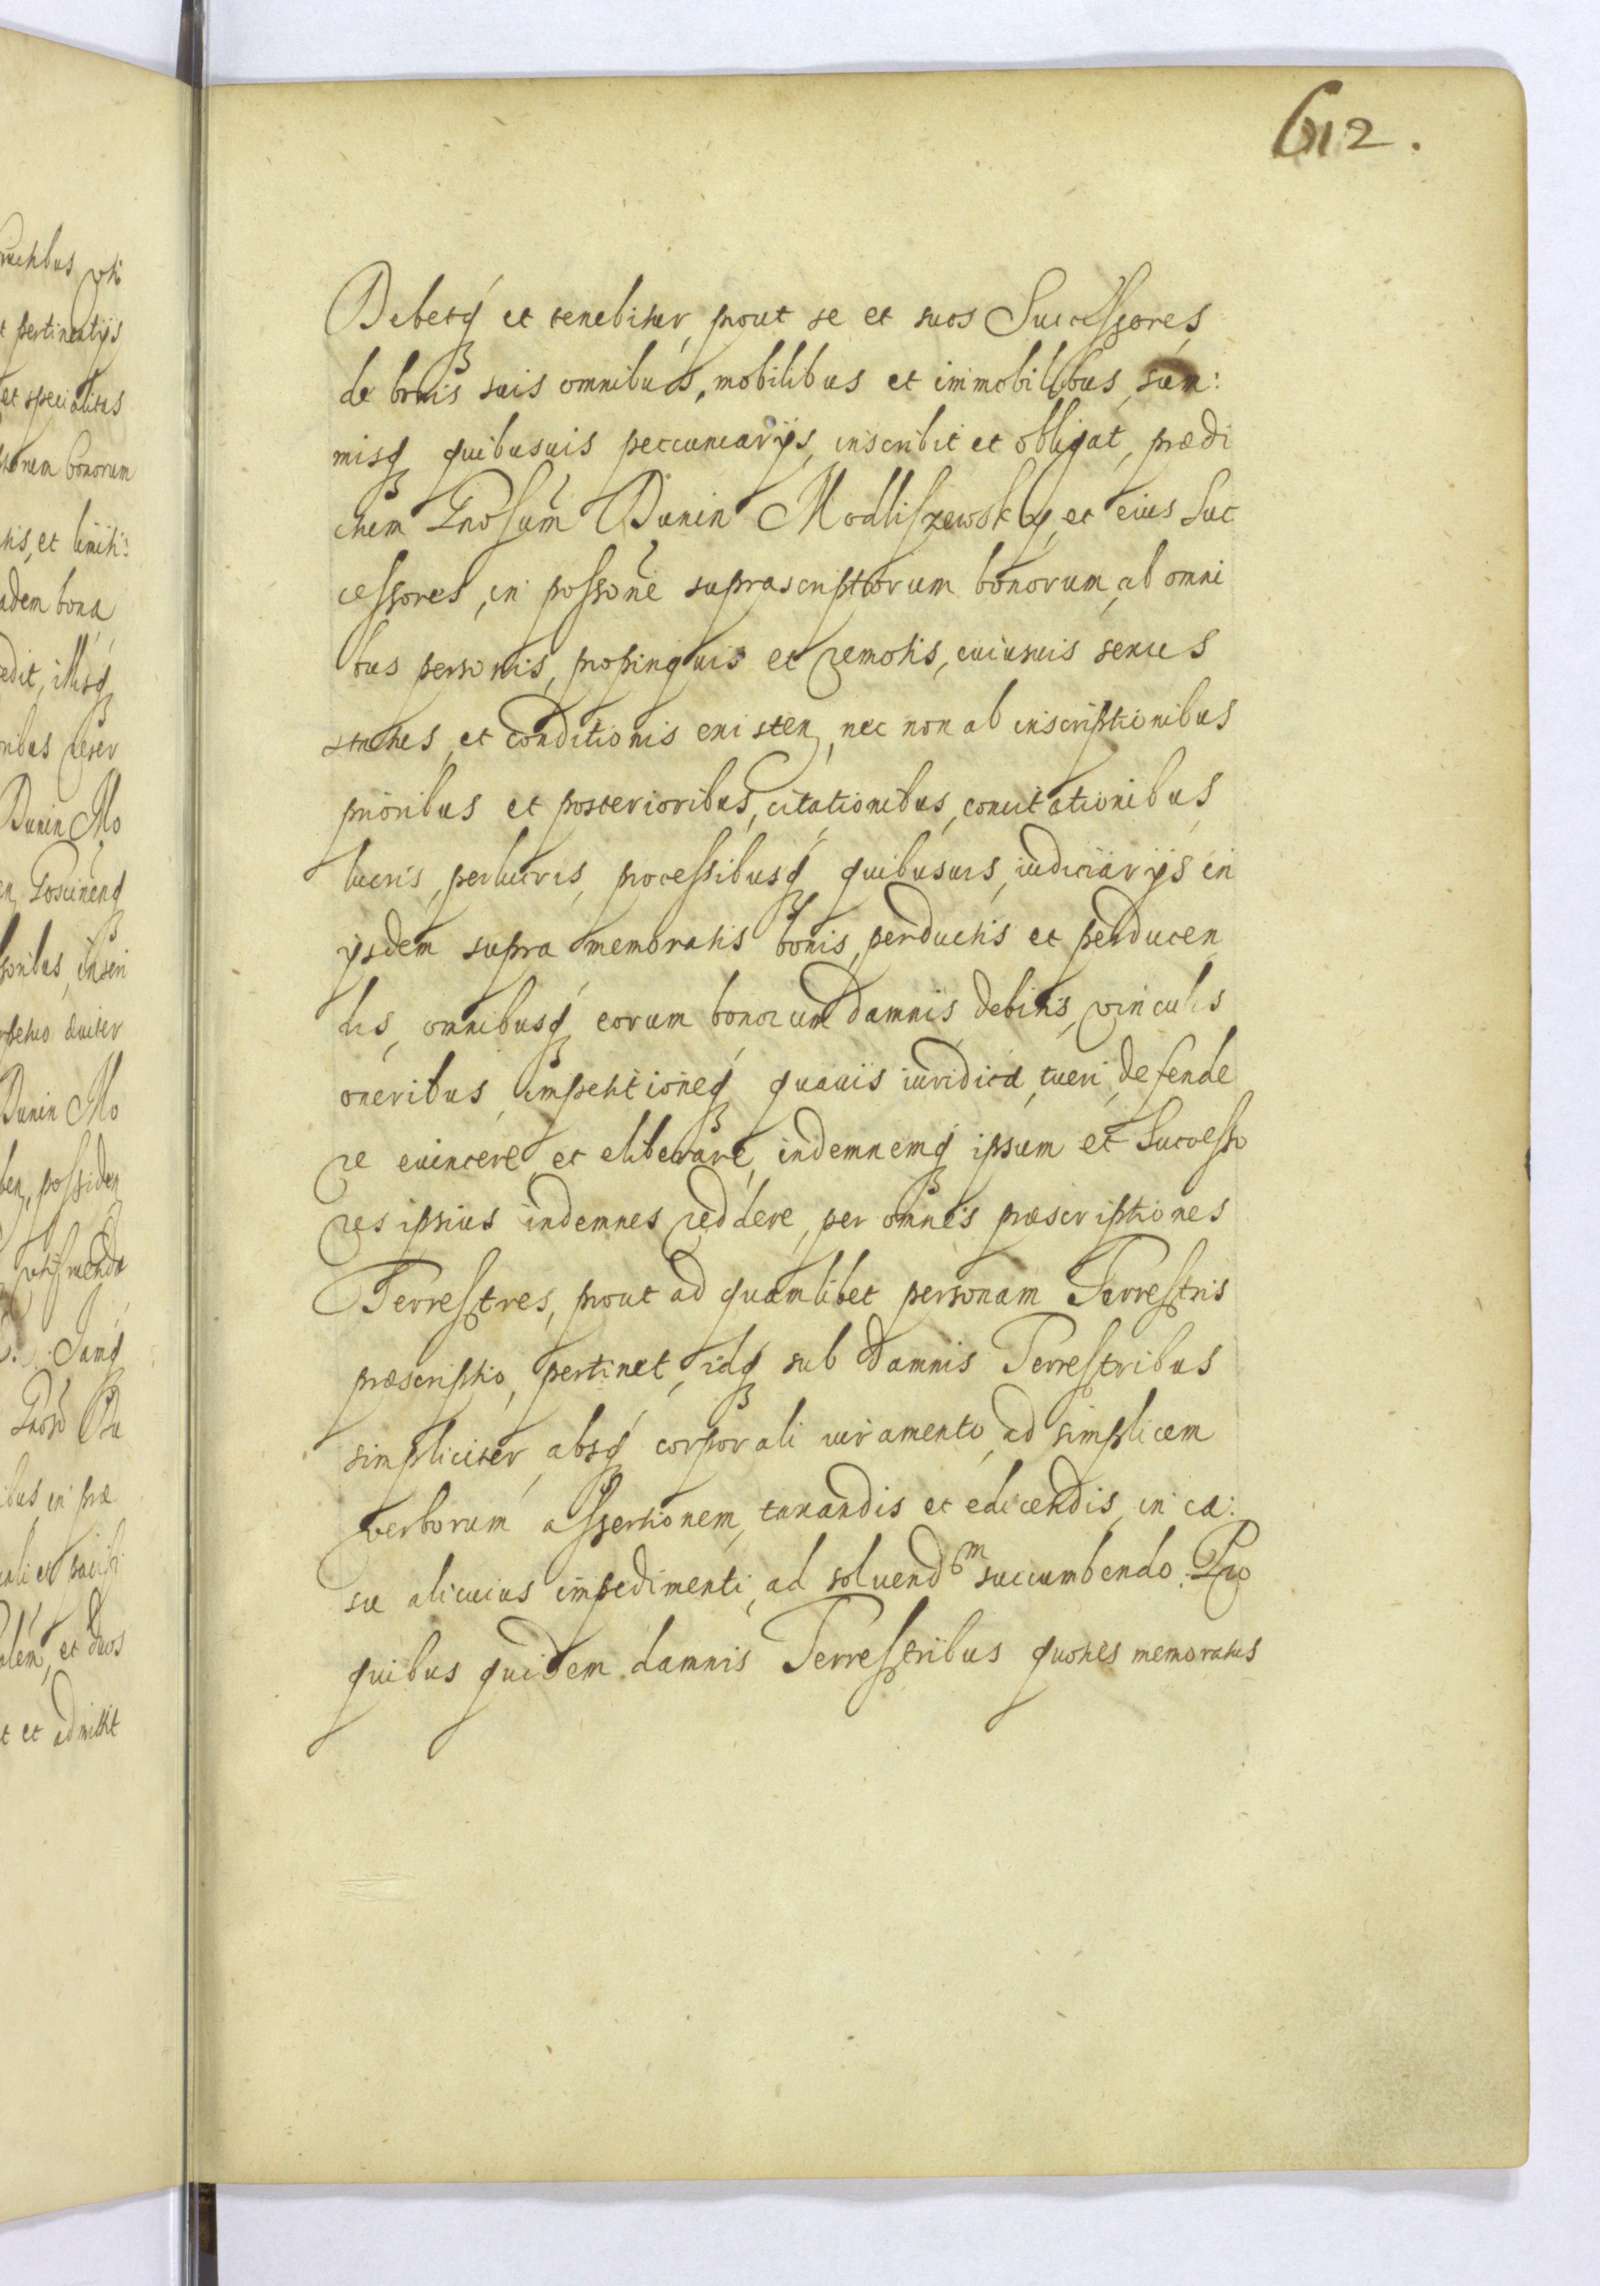 612.
Debetq́ꝫ et tenebitur, prout se et suos Successores,
de bonis suis omnibus, mobilibus et immobilibus, sum:
misq́ꝫ quibusuis peccuniarijs, inscribit et obligat, prædi
ctum Gnosum̃ Dunin Modliszewsky, et eius Suc
cessores, in possone᷉ suprascriptorum bonorum, ab omni
bus personis, propinquis et remotis, cuiusuis sexus
status, et conditionis existen, nec non ab inscriptionibus
prioribus et posterioribus, citationibus, concitationibus,
lucris, perlucris, processibusq́ꝫ quibusuis, iudiciarijs in
ijsdem supra memoratis bonis, perductis et perducen
dis, omnibusq́ꝫ eorum bonorum damnis, debitis, vinculis
oneribus, impetitioneq́ꝫ quauis iuridica, tueri, defende
re euincere, et eliberare, indemnemq́ꝫ ipsum et Successo
res ipsius indemnes reddere, per omnes præscriptiones
Terrestres, prout ad quamlibet personam Terrestris
præscriptio, pertinet, idq́ꝫ sub damnis Terrestribus
simpliciter, absq́ꝫ corporali iuramento, ad simplicem
verborum assertionem, taxandis et edicendis, in ca:
su alicuius impedimenti, ad soluendᵐ succumbendo. Pro
quibus quidem damnis Terrestribus quoties memoratus
ructibus, vti
t pertinentijs
et specialitus
bonorum
tis, et limit:
adem bona
edit, illisq́ꝫ
ribus reser
Dunin Mo
Dunin Mo
ben, possiden
ibus, in præ
alem, et duos
t et admittit